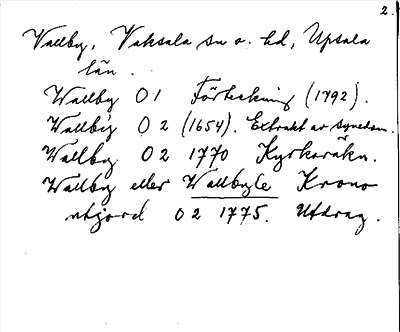 2.
Vallby, Vaksala sn o. hd, Upsala
län.
Wallby O 1 Förteckning (1792).
Wallby O 2 (1654). Extrakt av synedom.
Wallby O 2 1770 Kyrkoräkn.
Wallby eller Wallbyle Krono
utjord O 2 1775. Utdrag.